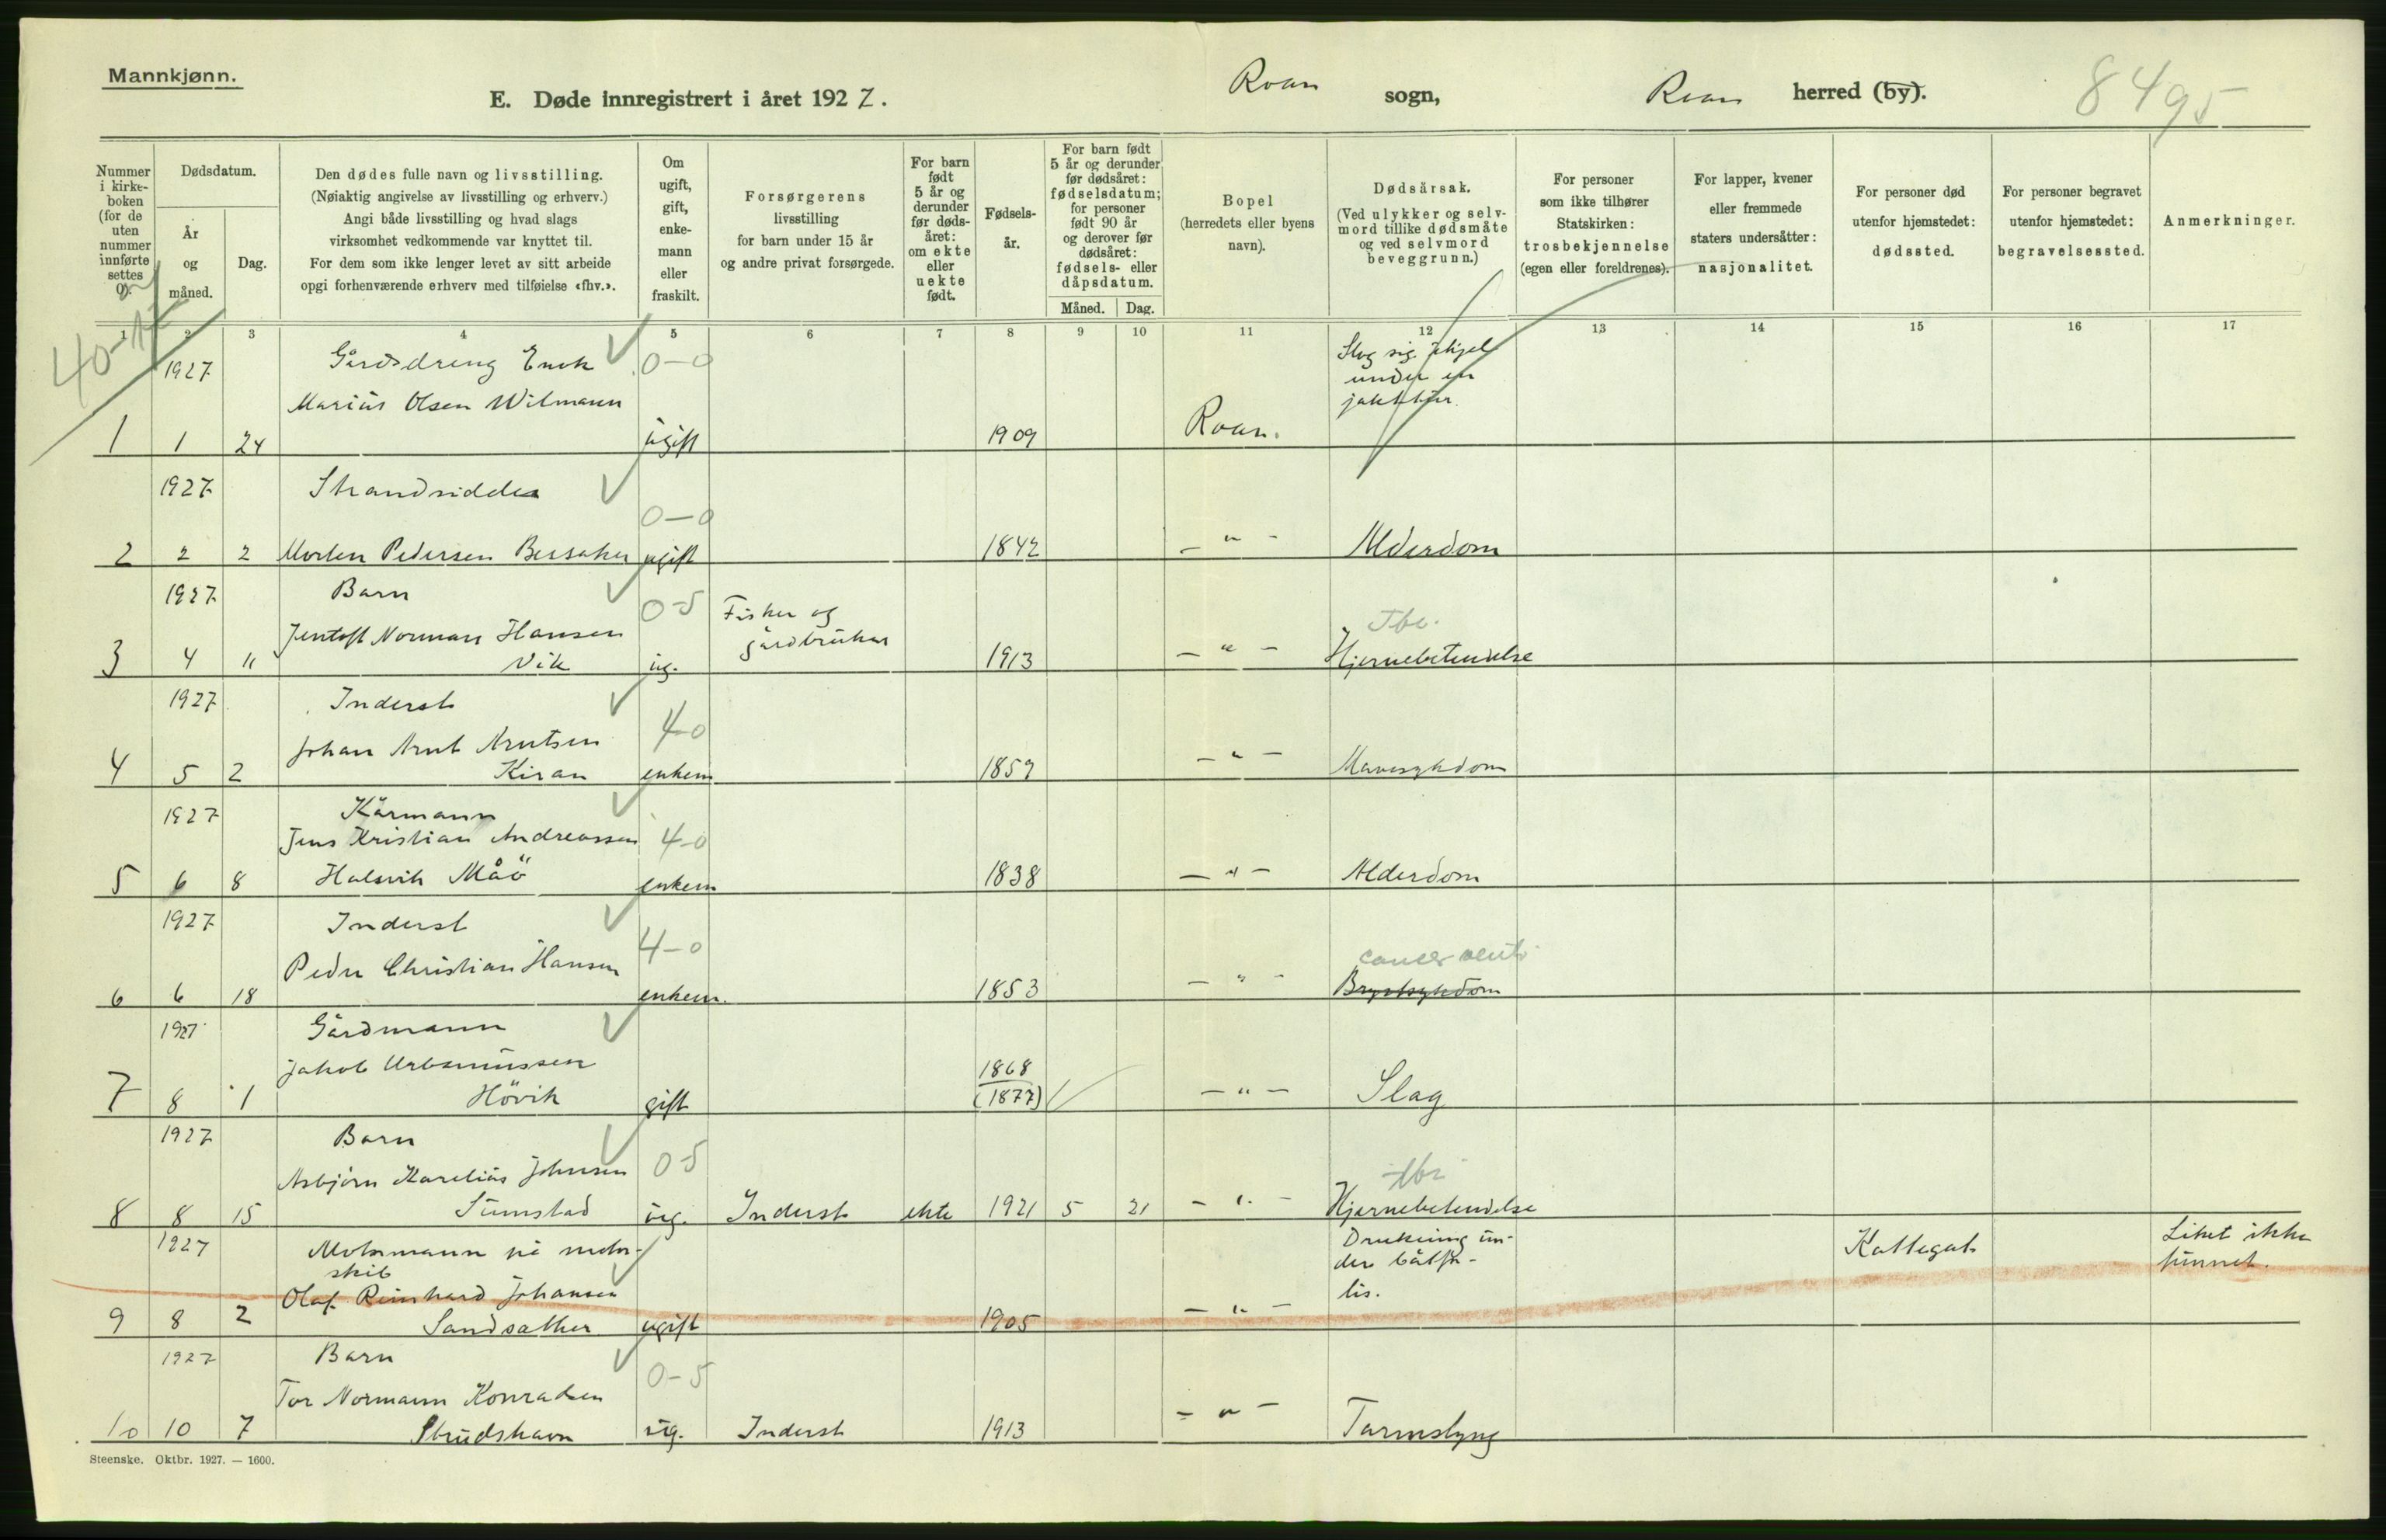 Mannkjønn.
E. Døde innregistrert i året 1927.
Roan sogn,
Roan herred (by).
8495
Nummer i kirke-boken (for de uten nummer innførte settes 0).
Dødsdatum.
År og måned.
Dag.
Den dødes fulle navn og livsstilling.
(Nøiaktig angivelse av livsstilling og erhverv.)
Angi både livsstilling og hvad slags
virksomhet vedkommende var knyttet til.
For dem som ikke lenger levet av sitt arbeide
opgi forhenværende erhverv med tilføielse «fhv.».
Om ugift, gift, enke-mann eller fraskilt.
Forsørgerens
livsstilling
for barn under 15 år
og andre privat forsørgede.
For barn født 5 år og derunder før døds-året: om ekte eller uekte født.
Fødsels-år.
For barn født 5 år og derunder før dødsåret: fødselsdatum; for personer født 90 år og derover før dødsåret: fødsels- eller dåpsdatum.
Måned.
Dag.
Bopel
(herredets eller byens
navn).
Dødsårsak.
(Ved ulykker og selv-
mord tillike dødsmåte
og ved selvmord
beveggrunn.)
For personer
som ikke tilhører
Statskirken:
trosbekjennelse
(egen eller foreldrenes).
For lapper, kvener
eller fremmede
staters undersåtter:
nasjonalitet.
For personer død
utenfor hjemstedet:
dødssted.
For personer begravet
utenfor hjemstedet:
begravelsessted.
Anmerkninger.
1 2 3 4 5 6 7 8 9 10 11 12 13 14 15 16 17
1927 Gårdsdreng Enok 0-0 Slog sig ihjel
Marius Olsen Wilmann under en
1 1 24 ugift 1909 Roan.
1927 Strandsidder
0-0
2 2 2 Morten Pedersen Bessaker ugift 1842 - " - Alderdom
1927 Barn 0-5 Fisker og
Jentoft Norman Hansen gårdbruker Tbc.
3 4 11 Vik ug. 1913 - " - Hjernebetendelse
1927 Inderst 4-0
Johan Arnt Arntsen
4 5 2 Kiran enkem 1859 - " - Mavesykdom
1927 Kårmann
Jens Kristian Andreassen 4-0
5 6 8 Halsvik Måö enkem 1838 - " - Alderdom
1927 Inderst 4-0
Peder Christian Hansen cancer ventr.
6 6 18 enkem. 1853 - " - Brystsykdom
1927 Gårdmann
Jakob Urbanussen 1868
7 8 1 Hövik gift (1877) - " - Slag
1927 Barn
Asbjörn Karelius Johnsen 0-5 tbc
8 8 15 Sumstad ug. Inderst ekte 1921 5 21 - " - Hjernebetendelse
1927 Motormann på motor- Drukning un- Kattegat Liket ikke
skib der båtfor- funnet.
Olaf Reinhard Johansen lis.
9 8 2 Sandsather ugift 1905 - " -
1927 Barn 0-5
Tor Normann Konradsen
10 10 7 Skudshavn ug. Inderst 1913 - " - Tarmslyng
Steenske. Oktbr. 1927. — 1600.